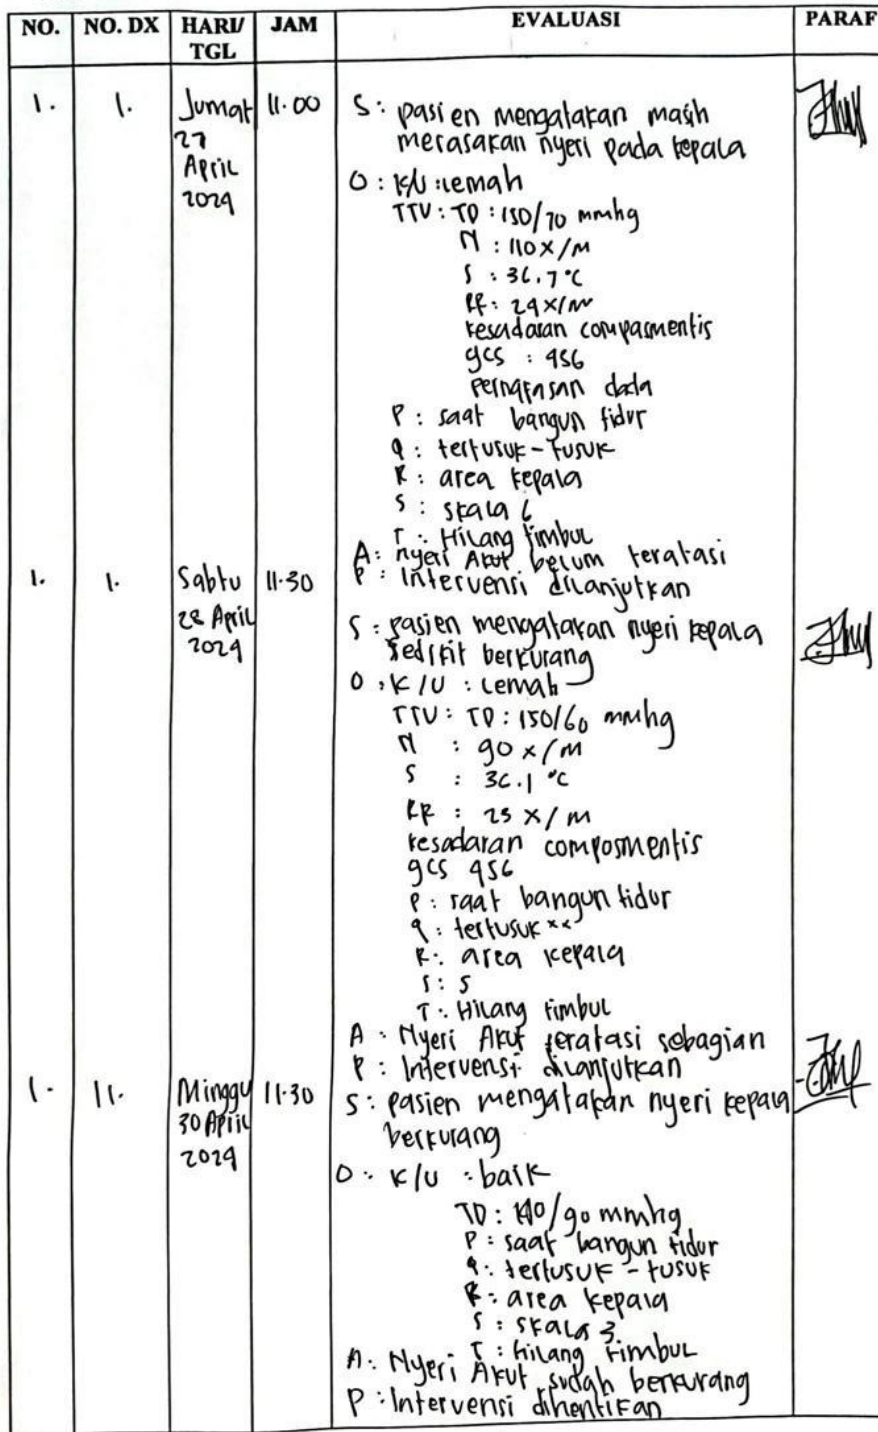 NO. NO. DX HARI/ TGL JAM EVALUASI PARAF
1. 1. Jumat 27 April 2024 11.00
S: pasien mengatakan masih
merasakan nyeri pada kepala
O: K/U: lemah
TTV: TD: 150/70 mmhg
N: 110x/m
S: 36.7°C
RR: 24x/m
kesadaran compasmentis
gcs : 456
Pernafasan dada
P: saat bangun tidur
Q: tertusuk-tusuk
R: area kepala
S: skala 6
T: Hilang timbul
A: nyeri Akut belum teratasi
P: Intervensi dilanjutkan
1. 1. Sabtu 28 April 2024 11.30
S: pasien mengatakan nyeri kepala
sedikit berkurang
O: K/U : lemah
TTV: TD: 150/60 mmhg
N : 90 x/m
S : 36.1 °C
RR : 23 x/m
kesadaran composmentis
gcs 456
P: saat bangun tidur
Q: tertusuk ××
R: area kepala
S: 5
T: Hilang timbul
A: Nyeri Akut teratasi sebagian
P: Intervensi dilanjutkan
1. 11. Minggu 30 April 2024 11.30
S: pasien mengatakan nyeri kepala
berkurang
O: K/U : baik
TD: 140/90 mmhg
P: saat bangun tidur
Q: tertusuk-tusuk
R: area kepala
S: skala 3
T: hilang timbul
A: Nyeri Akut sudah berkurang
P: Intervensi dihentikan